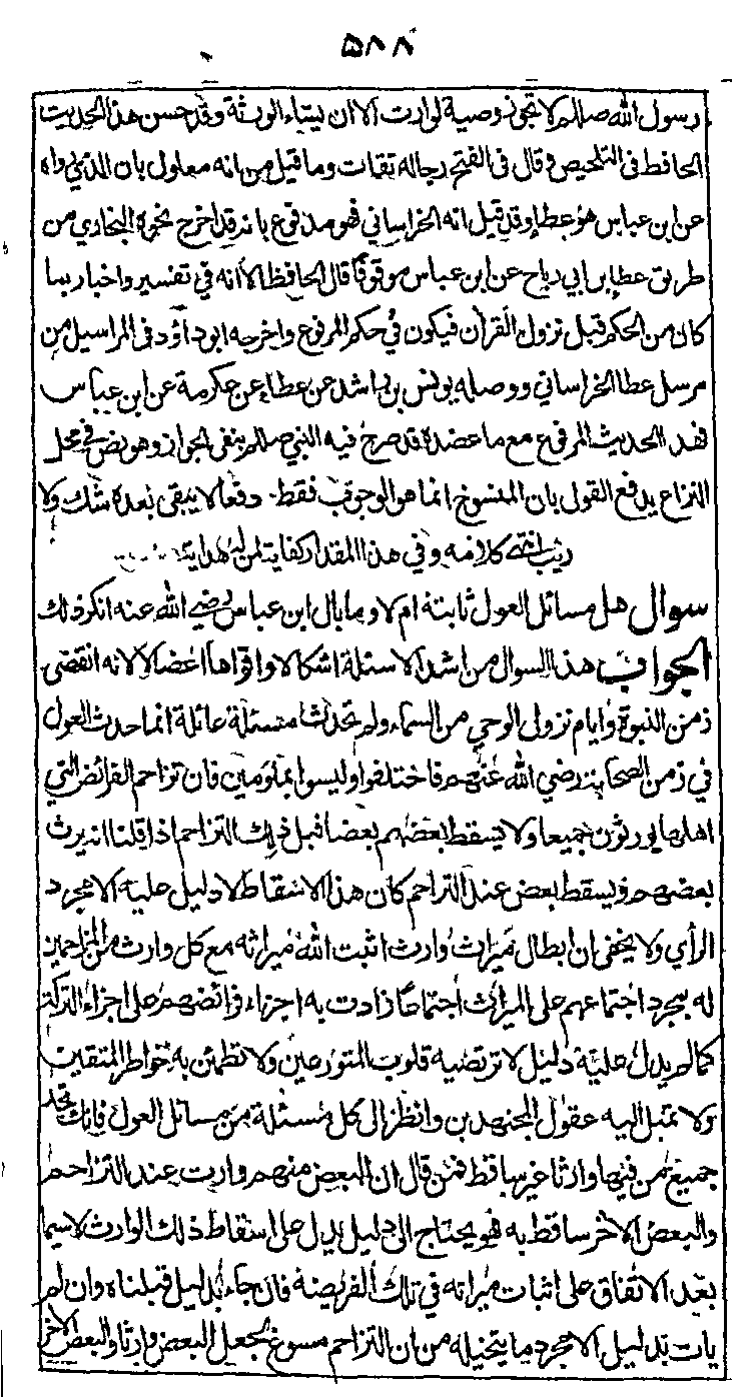 ۵۸۸
رسول الله صللم لا تجوز وصية لوارث الا ان يشاء الورثة وقد حسن هذا الحديث
الحافظ فى التلخيص وقال فى الفتح رجاله ثقات وما قيل من انه معلول بان الذي رواه
عن ابن عباس هو عطا وقد قيل انه الخراساني فهو مدفوع بانه قد اخرج نحوه البخاري من
طريق عطا بن ابي رباح عن ابن عباس موقوفا قال الحافظ الا انه في تفسير واخبار بما
كان من الحكم قبل نزول القرآن فيكون في حكم المرفوع واخرجه ابو داؤد فى المراسيل من
مرسل عطا الخراساني ووصله يونس بن راشد عن عطاء عن عكرمة عن ابن عباس
فهذا الحديث المرفوع مع ما عضده قد صرح فيه النبي صللم بنفى الجواز وهو نص في محل
النزاع يدفع القول بان المنسوخ انما هو الوجوب فقط دفعا لا يبقى بعده شك ولا
ريب انتهى كلامه وفي هذا المقدار كفاية لمن له هداية
سوال هل مسائل العول ثابتة ام لا وما بال ابن عباس رضي الله عنه انكر ذلك
الجواب هذا السوال من اشد الاسئلة اشكالا واقواها اعضالا لانه انقضى
زمن النبوة وايام نزول الوحي من السماء ولم تحدث مسئلة عائلة انما حدث العول
في زمن الصحابة رضي الله عنهم فاختلفوا وليسوا بملومين فان تزاحم الفرائض التي
اهلها يورثون جميعا ولا يسقط بعضهم بعضا قبل ذلك التزاحم اذا قلنا انه يرث
بعضهم ويسقط بعض عند التزاحم كان هذا الاسقاط لا دليل عليه الا مجرد
الرأي ولا يخفى ان ابطال ميراث وارث اثبت الله ميراثه مع كل وارث من المزاحمين
له بمجرد اجتماعهم على الميراث اجتماعا زادت به اجزاء فرائضهم على اجزاء التركة
مما لم يدل عليه دليل لا ترتضيه قلوب المتورعين ولا تطمئن به خواطر المتقين
ولا تميل اليه عقول المجتهدين وانظر الى كل مسئلة من مسائل العول فانك تجد
جميع من فيها وارثا غير ساقط فمن قال ان البعض منهم وارث عند التزاحم
والبعض الآخر ساقط به فهو يحتاج الى دليل يدل على اسقاط ذلك الوارث لا سيما
بعد الاتفاق على اثبات ميراثه في تلك الفريضة فان جاء بدليل قبلناه وان لم
يات بدليل الا مجرد ما يتخيله من ان التزاحم مسوغ لجعل البعض وارثا والبعض الآخر